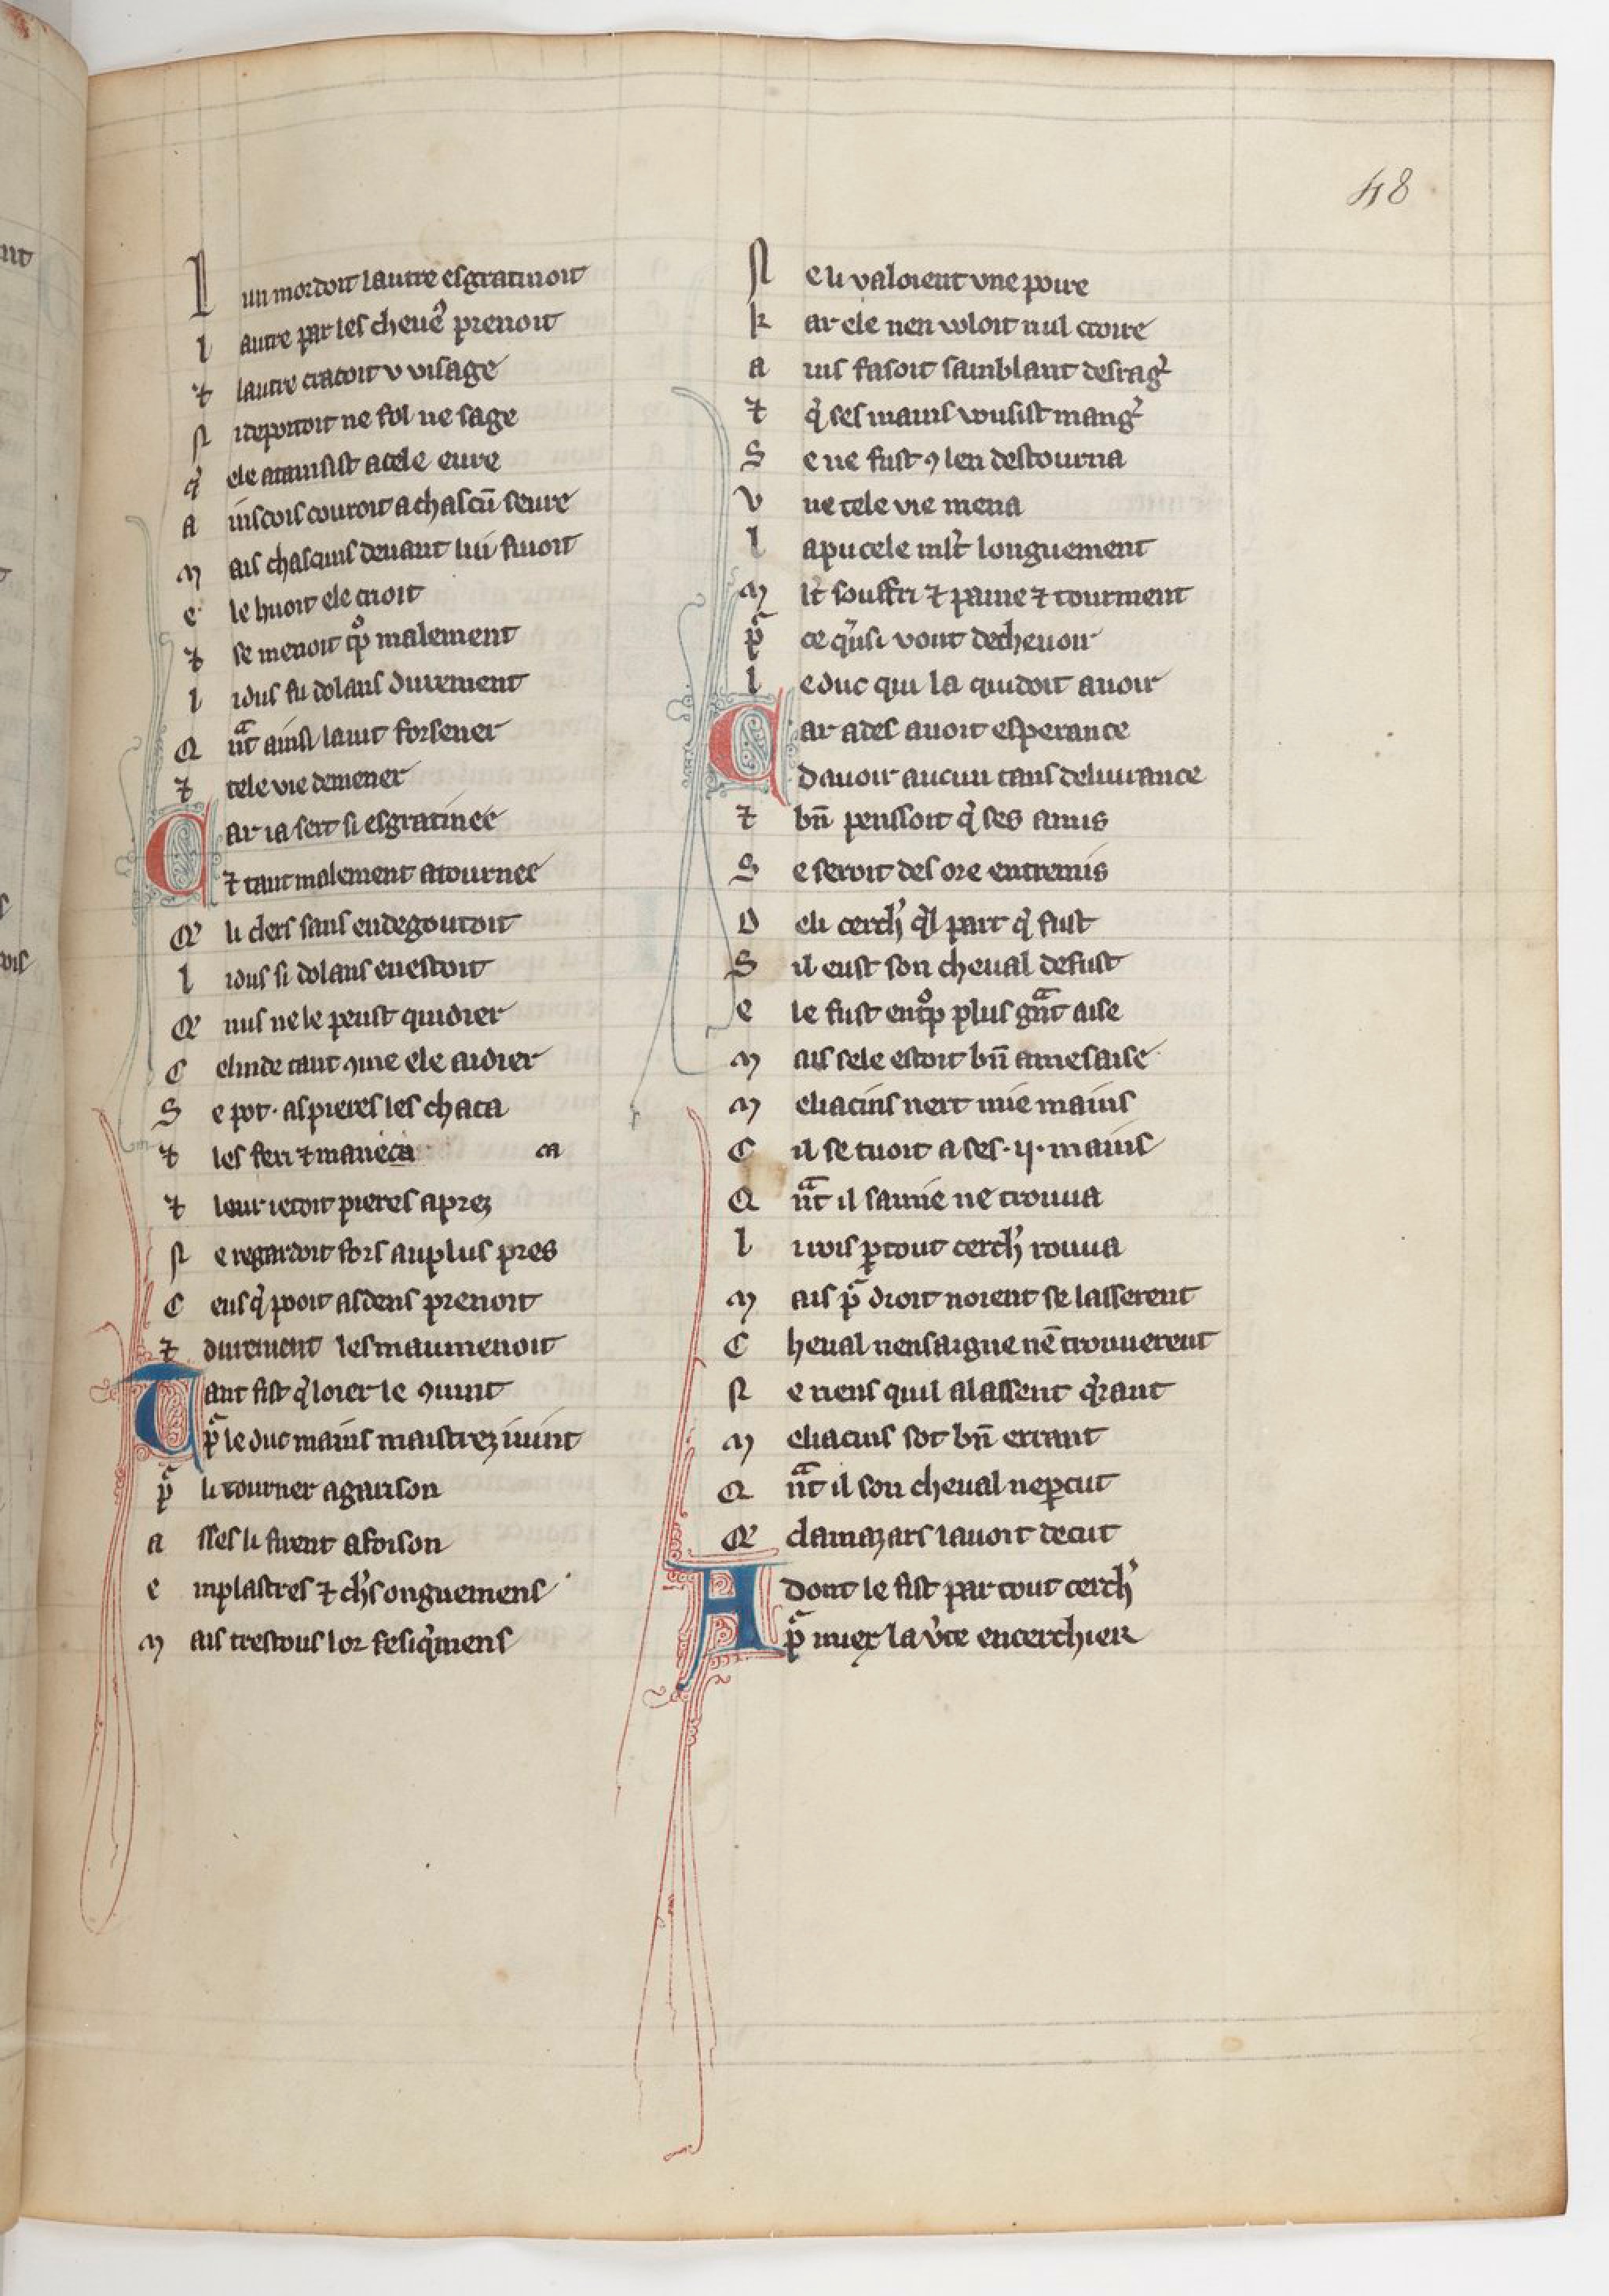 48
L un mordoit lautre esgratinoit
l autre par les cheueˀ prenoit
⁊ lautre cratoit v visage
N i deportoit ne fol ne sage
qͥ ele atainsist a cele eure
A inscois couroit a chascū seure
M ais chascuns deuant lui fuioit
e le huoit ele crioit
⁊ se menoit tꝓ malement
l idus fu dolans durement
Q ᵃnt ainsi lauit forsener
⁊ tele vie demener
Car ia sert si esgratinee
⁊ tant malement atournee
Q̓ li clers sans en degoutoit
l idus si dolans en estoit
Q̓ nus ne le peust quidier
C elinde tant ꝯme ele aidier
S e pot · as pieres les chaca
⁊ les feri ⁊ maneca
⁊ leur ietoit pieres aprez
N e regardoit fors au plus pres
C eus qͥ pooit as dens prenoit
⁊ durement les maumenoit
Tant fist qͥ loier le ꝯuint
pᵃ le duc mains maistrez i uint
pᵃ li tourner a garison
a sses li firent a foison
e mplastres ⁊ ch̓s onguemens
M ais trestous lor fesiqͥmens
N e li valoient vne poire
k ar ele nen voloit nul croire
a ins fasoit samblant desragˀ
⁊ qͥ ses mains vousist mangˀ
S e ne fust ꝯ len destourna
V ne tele vie mena
l a pucele ml̓t longuement
M l̓t souffri ⁊ paine ⁊ tourment
pᵃ ce qͥnsi vout decheuoir
l e duc qui la quidoit auoir
Car ades auoit esperance
dauoir aucun tans deliurance
⁊ bn̄ pensoit qͥ ses amis
S e seroit des ore entremis
D e li cerch̓ qͥl part qͥ fust
S il eust son cheual de fust
e le fust entꝓ plus gᵃnt aise
M ais sele estoit bn̄ a mesaise
M eliacins nert mie mains
C il se tuoit a ses · ij · mains
Q ᵃnt il samie ne trouua
l i rois ꝑtout cerch̓ rouua
M ais pᵃ droit noient se lasserent
C heual nensaigne nē trouuerent
N e riens quil alassent qͥrant
M eliacins sot bn̄ errant
Q ᵃnt il son cheual neꝑcut
Q̓ clamazars lauoit decut
Adont le fist par tout cerch̓
pᵃ miex la v̓te encerchier